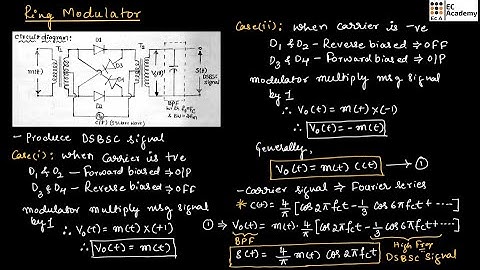 Ring Modulator
EC Academy
circuit diagram:
D1
T1
T2
D3
D4
m(t)
V0(t)
S(t)
DSBSC
signal
D2
BPF
C(t) (square wave)
- Produce DSBSC signal
Case(i): when carrier is +ve
D1 & D2 - Forward biased ⇒ O/P
D3 & D4 - Reverse biased ⇒ OFF
modulator multiply msg signal
by 1
∴ V0(t) = m(t) × (+1)
∴ V0(t) = m(t)
Case(ii): when carrier is -ve
D1 & D2 - Reverse biased ⇒ OFF
D3 & D4 - Forward biased ⇒ O/P
modulator multiply msg signal
by 1
∴ V0(t) = m(t) × (-1)
∴ V0(t) = -m(t)
Generally,
V0(t) = m(t) c(t) → ①
- Carrier signal ⇒ Fourier series
* c(t) = 4/π [cos 2πfct - 1/3 cos 6πfct + ....]
① ⇒ V0(t) = m(t). 4/π [cos 2πfct - 1/3 cos 6πfct + ....]
BPF
High Freq
S(t) = 4/π m(t) cos 2πfct
DSBSC signal